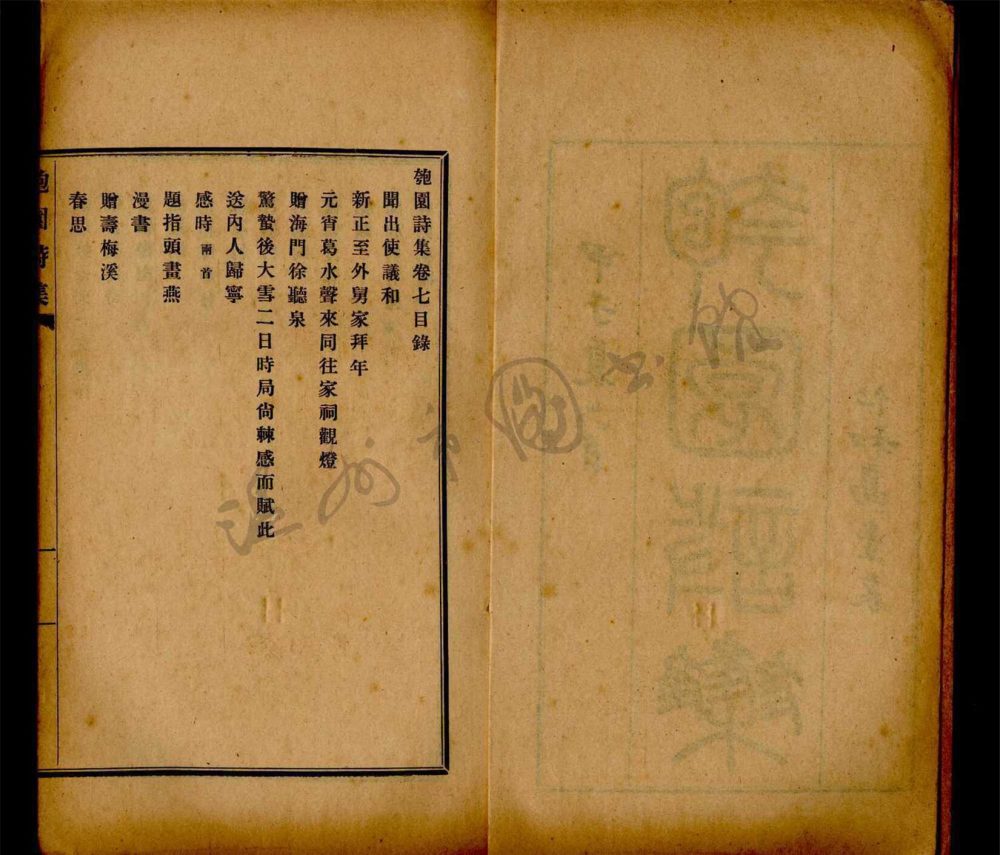 匏園詩集卷七目錄
聞出使議和
新正至外舅家拜年
元宵葛水聲來同往家祠觀燈
贈海門徐聽泉
驚蟄後大雪二日時局尙棘感而賦此
送內人歸寧
感時 兩首
題指頭畫燕
漫書
贈壽梅溪
春思
匏園詩集
溫州市圖書館